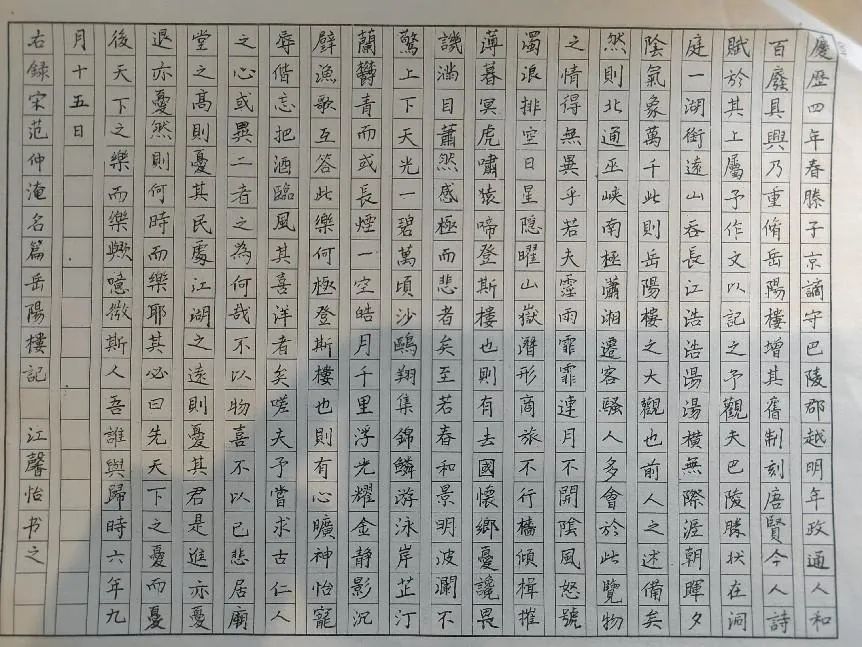 慶歷四年春滕子京謫守巴陵郡越明年政通人和
百廢具興乃重脩岳陽樓增其舊制刻唐賢今人詩
賦於其上屬予作文以記之予觀夫巴陵勝状在洞
庭一湖銜遠山吞長江浩浩湯湯橫無際涯朝暉夕
陰氣象萬千此則岳陽樓之大觀也前人之述備矣
然則北通巫峽南極瀟湘遷客騷人多會於此覽物
之情得無異乎若夫霪雨霏霏連月不開陰風怒號
濁浪排空日星隱曜山嶽潛形商旅不行檣傾楫摧
薄暮冥虎嘯猿啼登斯樓也則有去國懷鄉憂讒畏
譏滿目蕭然感極而悲者矣至若春和景明波瀾不
驚上下天光一碧萬頃沙鷗翔集錦鱗游泳岸芷汀
蘭鬱青而或長煙一空皓月千里浮光耀金静影沉
璧漁歌互答此樂何極登斯樓也則有心曠神怡寵
辱偕忘把酒臨風其喜洋者矣嗟夫予嘗求古仁人
之心或異二者之為何哉不以物喜不以己悲居廟
堂之高則憂其民處江湖之遠則憂其君是進亦憂
退亦憂然則何時而樂耶其必曰先天下之憂而憂
後天下之樂而樂歟噫微斯人吾誰與歸時六年九
月十五日
右録宋范仲淹名篇岳陽樓記 江馨怡书之